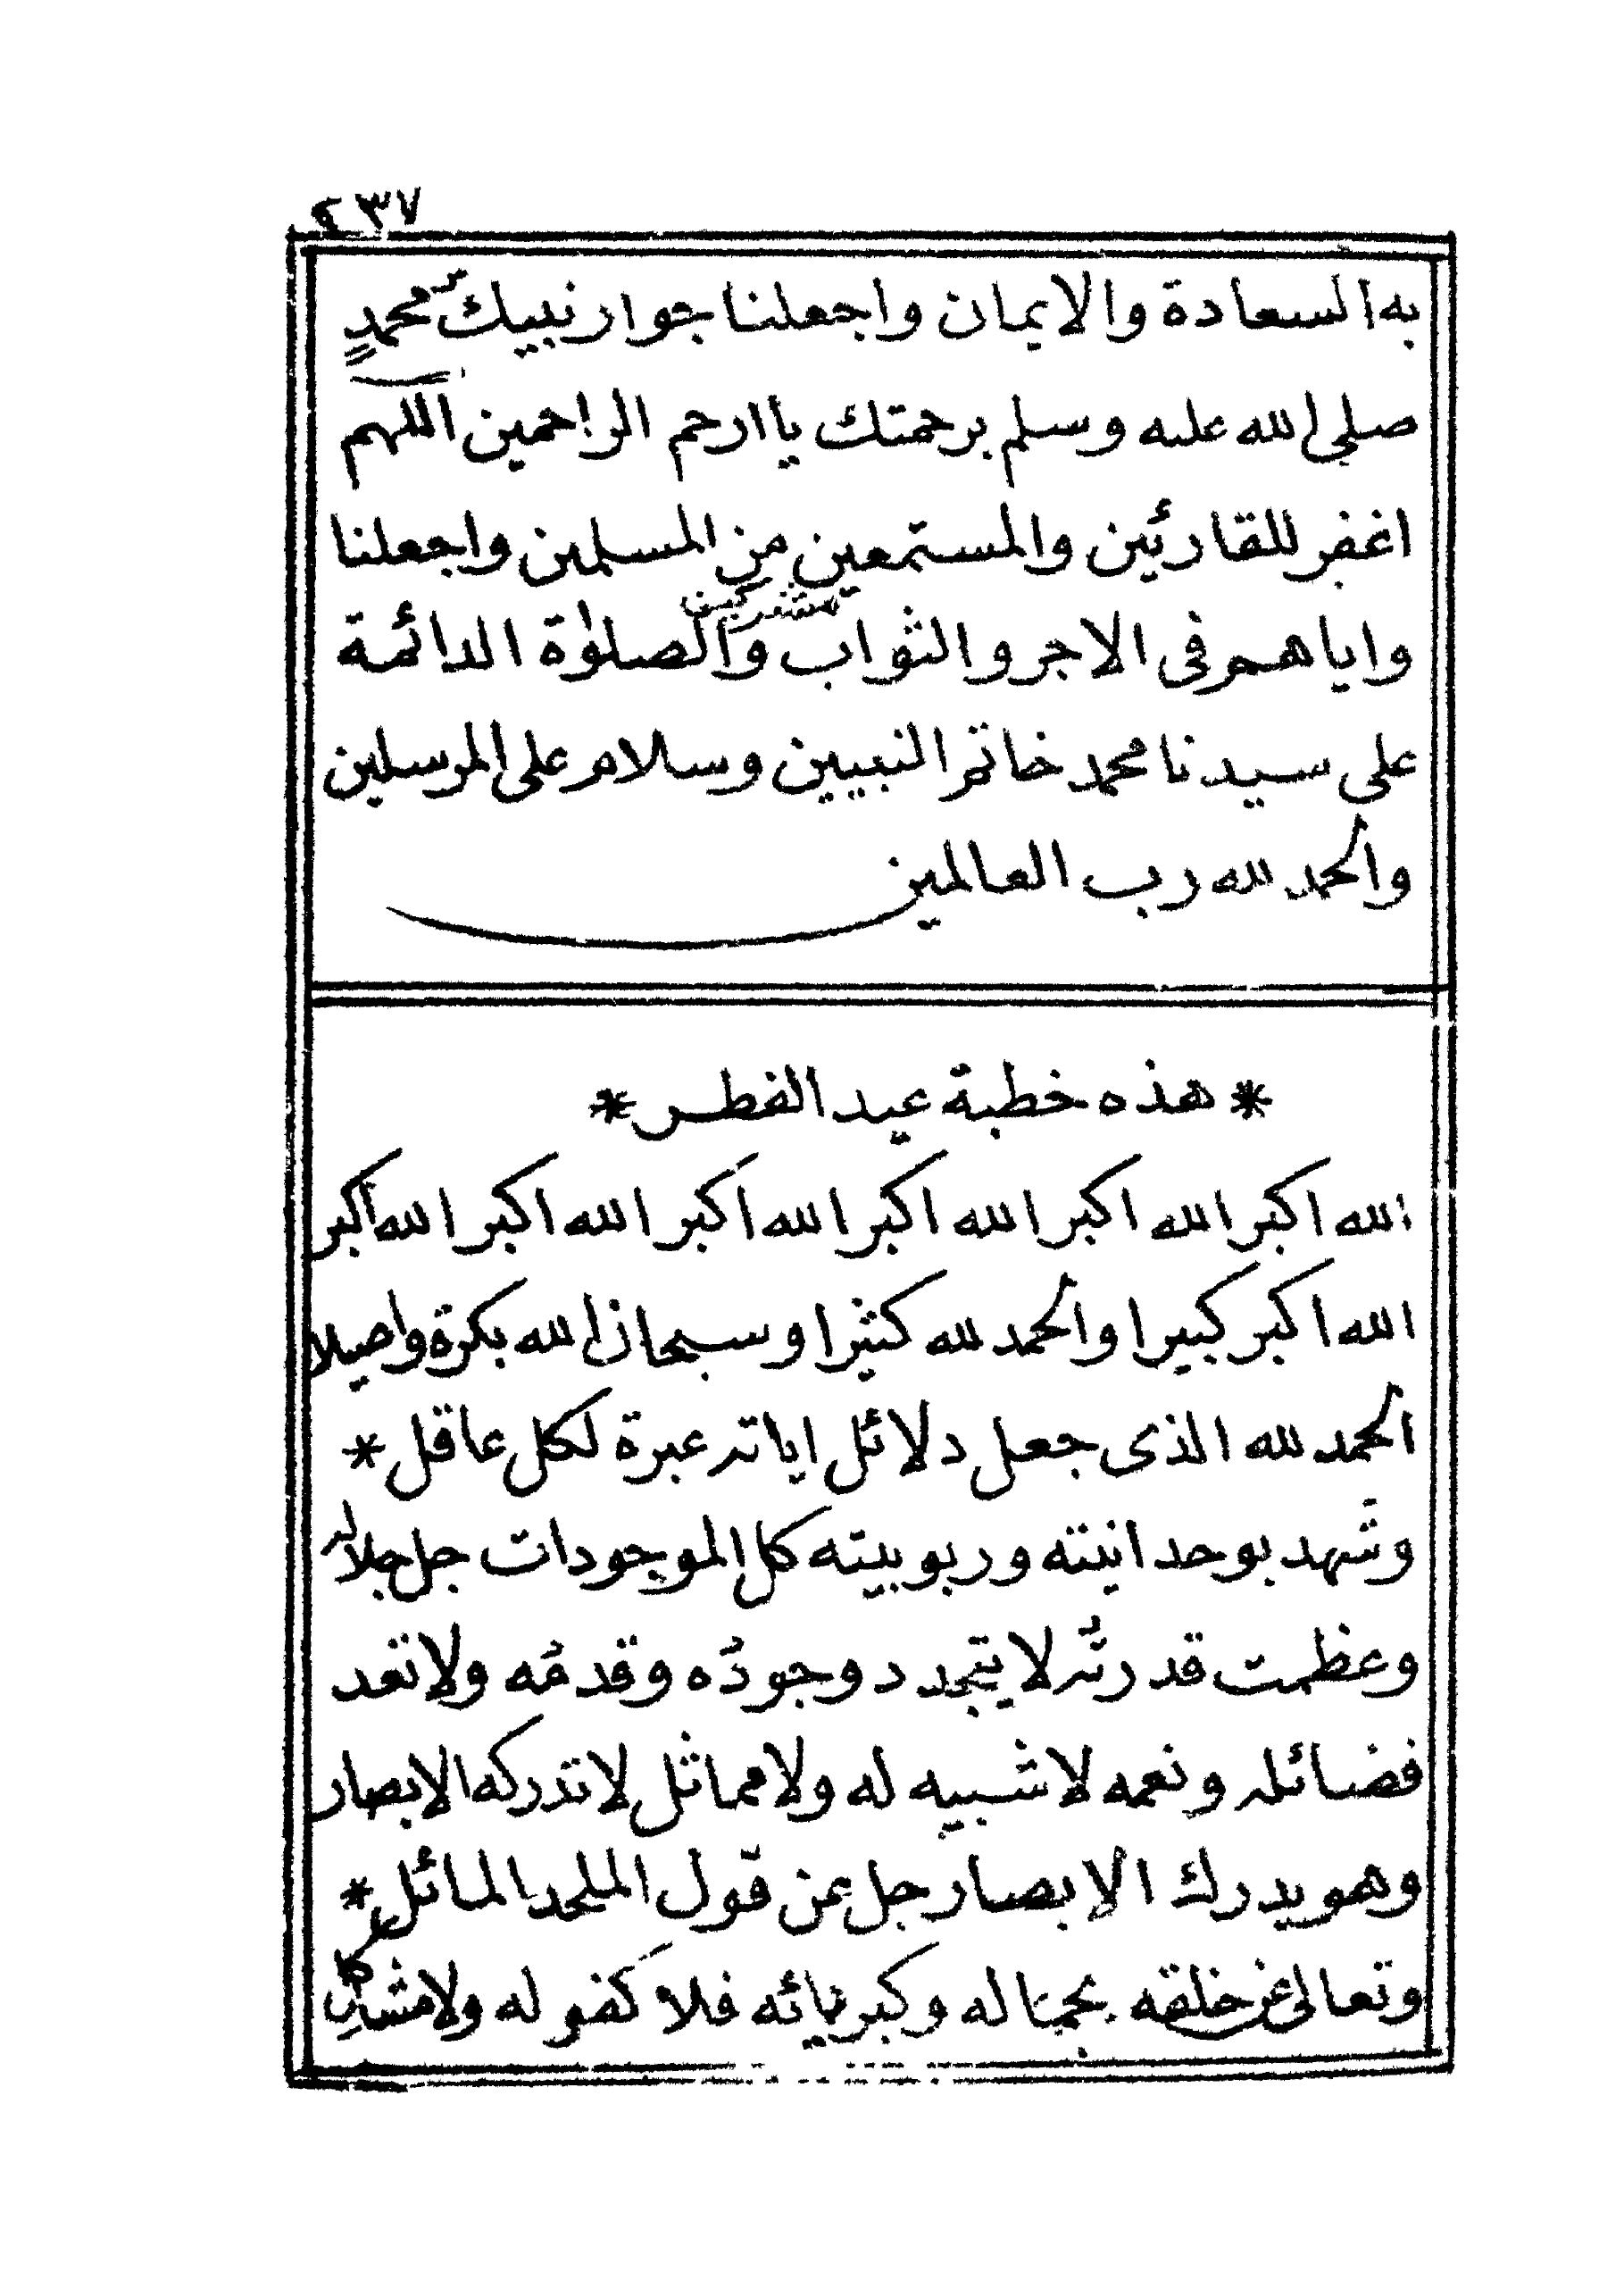 ٤٣٧
به السعادة والايمان واجعلنا جوار نبيك محمدٍ
صلى الله عليه وسلم برحمتك يا ارحم الراحمين اللهم
اغفر للقارئين والمستمعين من المسلمين واجعلنا
مشتركين
واياهم فى الاجر والثواب والصلوٰة الدائمة
على سيدنا محمد خاتم النبيين وسلام على المرسلين
والحمد لله رب العالمين
* هذه خطبة عيد الفطر *
الله اكبر الله اكبر الله اكبر الله اكبر الله اكبر الله اكبر
الله اكبر كبيرا والحمد لله كثيرا وسبحان الله بكرة واصيلا
الحمد لله الذى جعل دلائل اياته عبرة لكل عاقل *
وشهد بوحدانيته وربوبيته كل الموجودات جل جلاله
وعظمت قدرتُه لا يتجدد وجودُه وقدمُه ولا تعد
فضائله ونعمه لا شبيه له ولا مماثل لا تدركه الابصار
وهو يدرك الابصار جل عن قول الملحد المائل *
وتعالى عن خلقه بجماله وكبريائه فلا كفو له ولا مشاكل